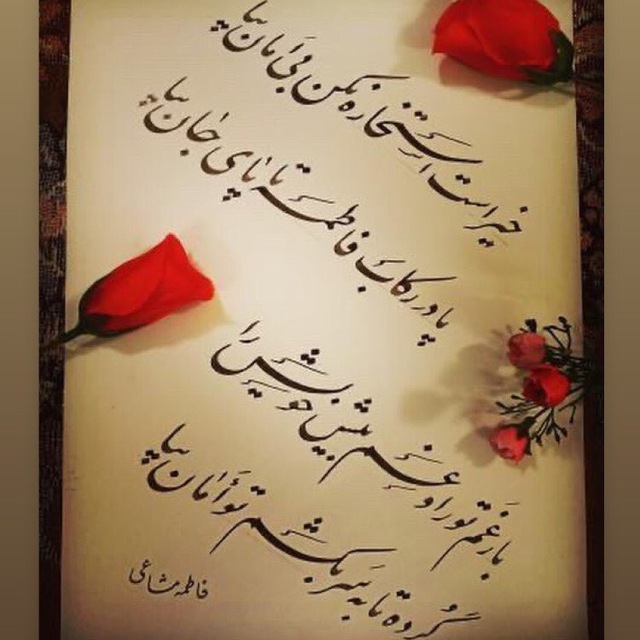 خیر است استخاره نکن بی امان بیا
پا در رکاب فاطمه تا پای جان بیا
بار غم تو را و غم بیش خویش را
گُرده تا به سر بکشم تو أمان بیا
فاطمه مشاعی